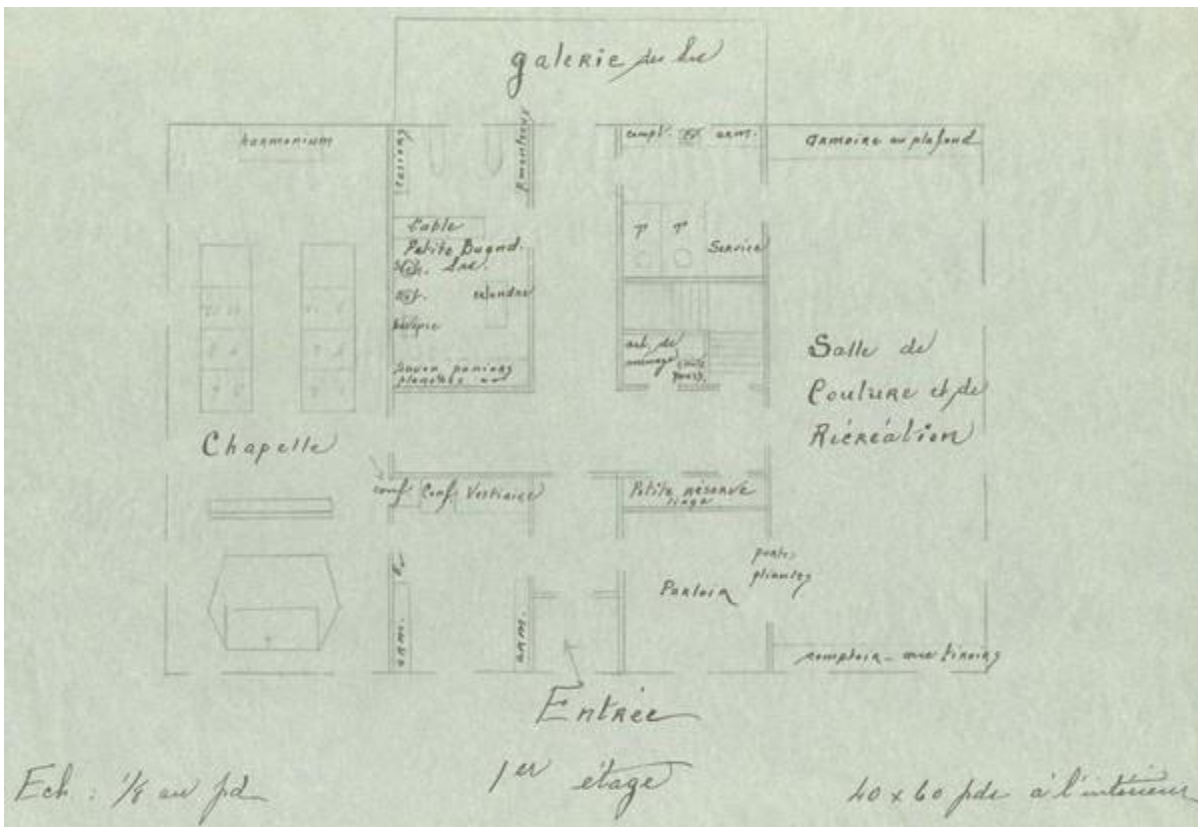 galerie des
harmonium
casiers
compt. arm.
armoire au plafond
table
Petite Buand.
calendre
Service
savon paniers
planches
art. de
ménage
Salle de
Couture et de
Récréation
Chapelle
conf Conf. Vestiaire
Petite réserve
linge
portes
pliantes
Parloir
arm.
arm.
comptoir - avec tiroirs
Entrée
1er étage
Ech : 1/8 au pd
40 x 60 pds à l'intérieur